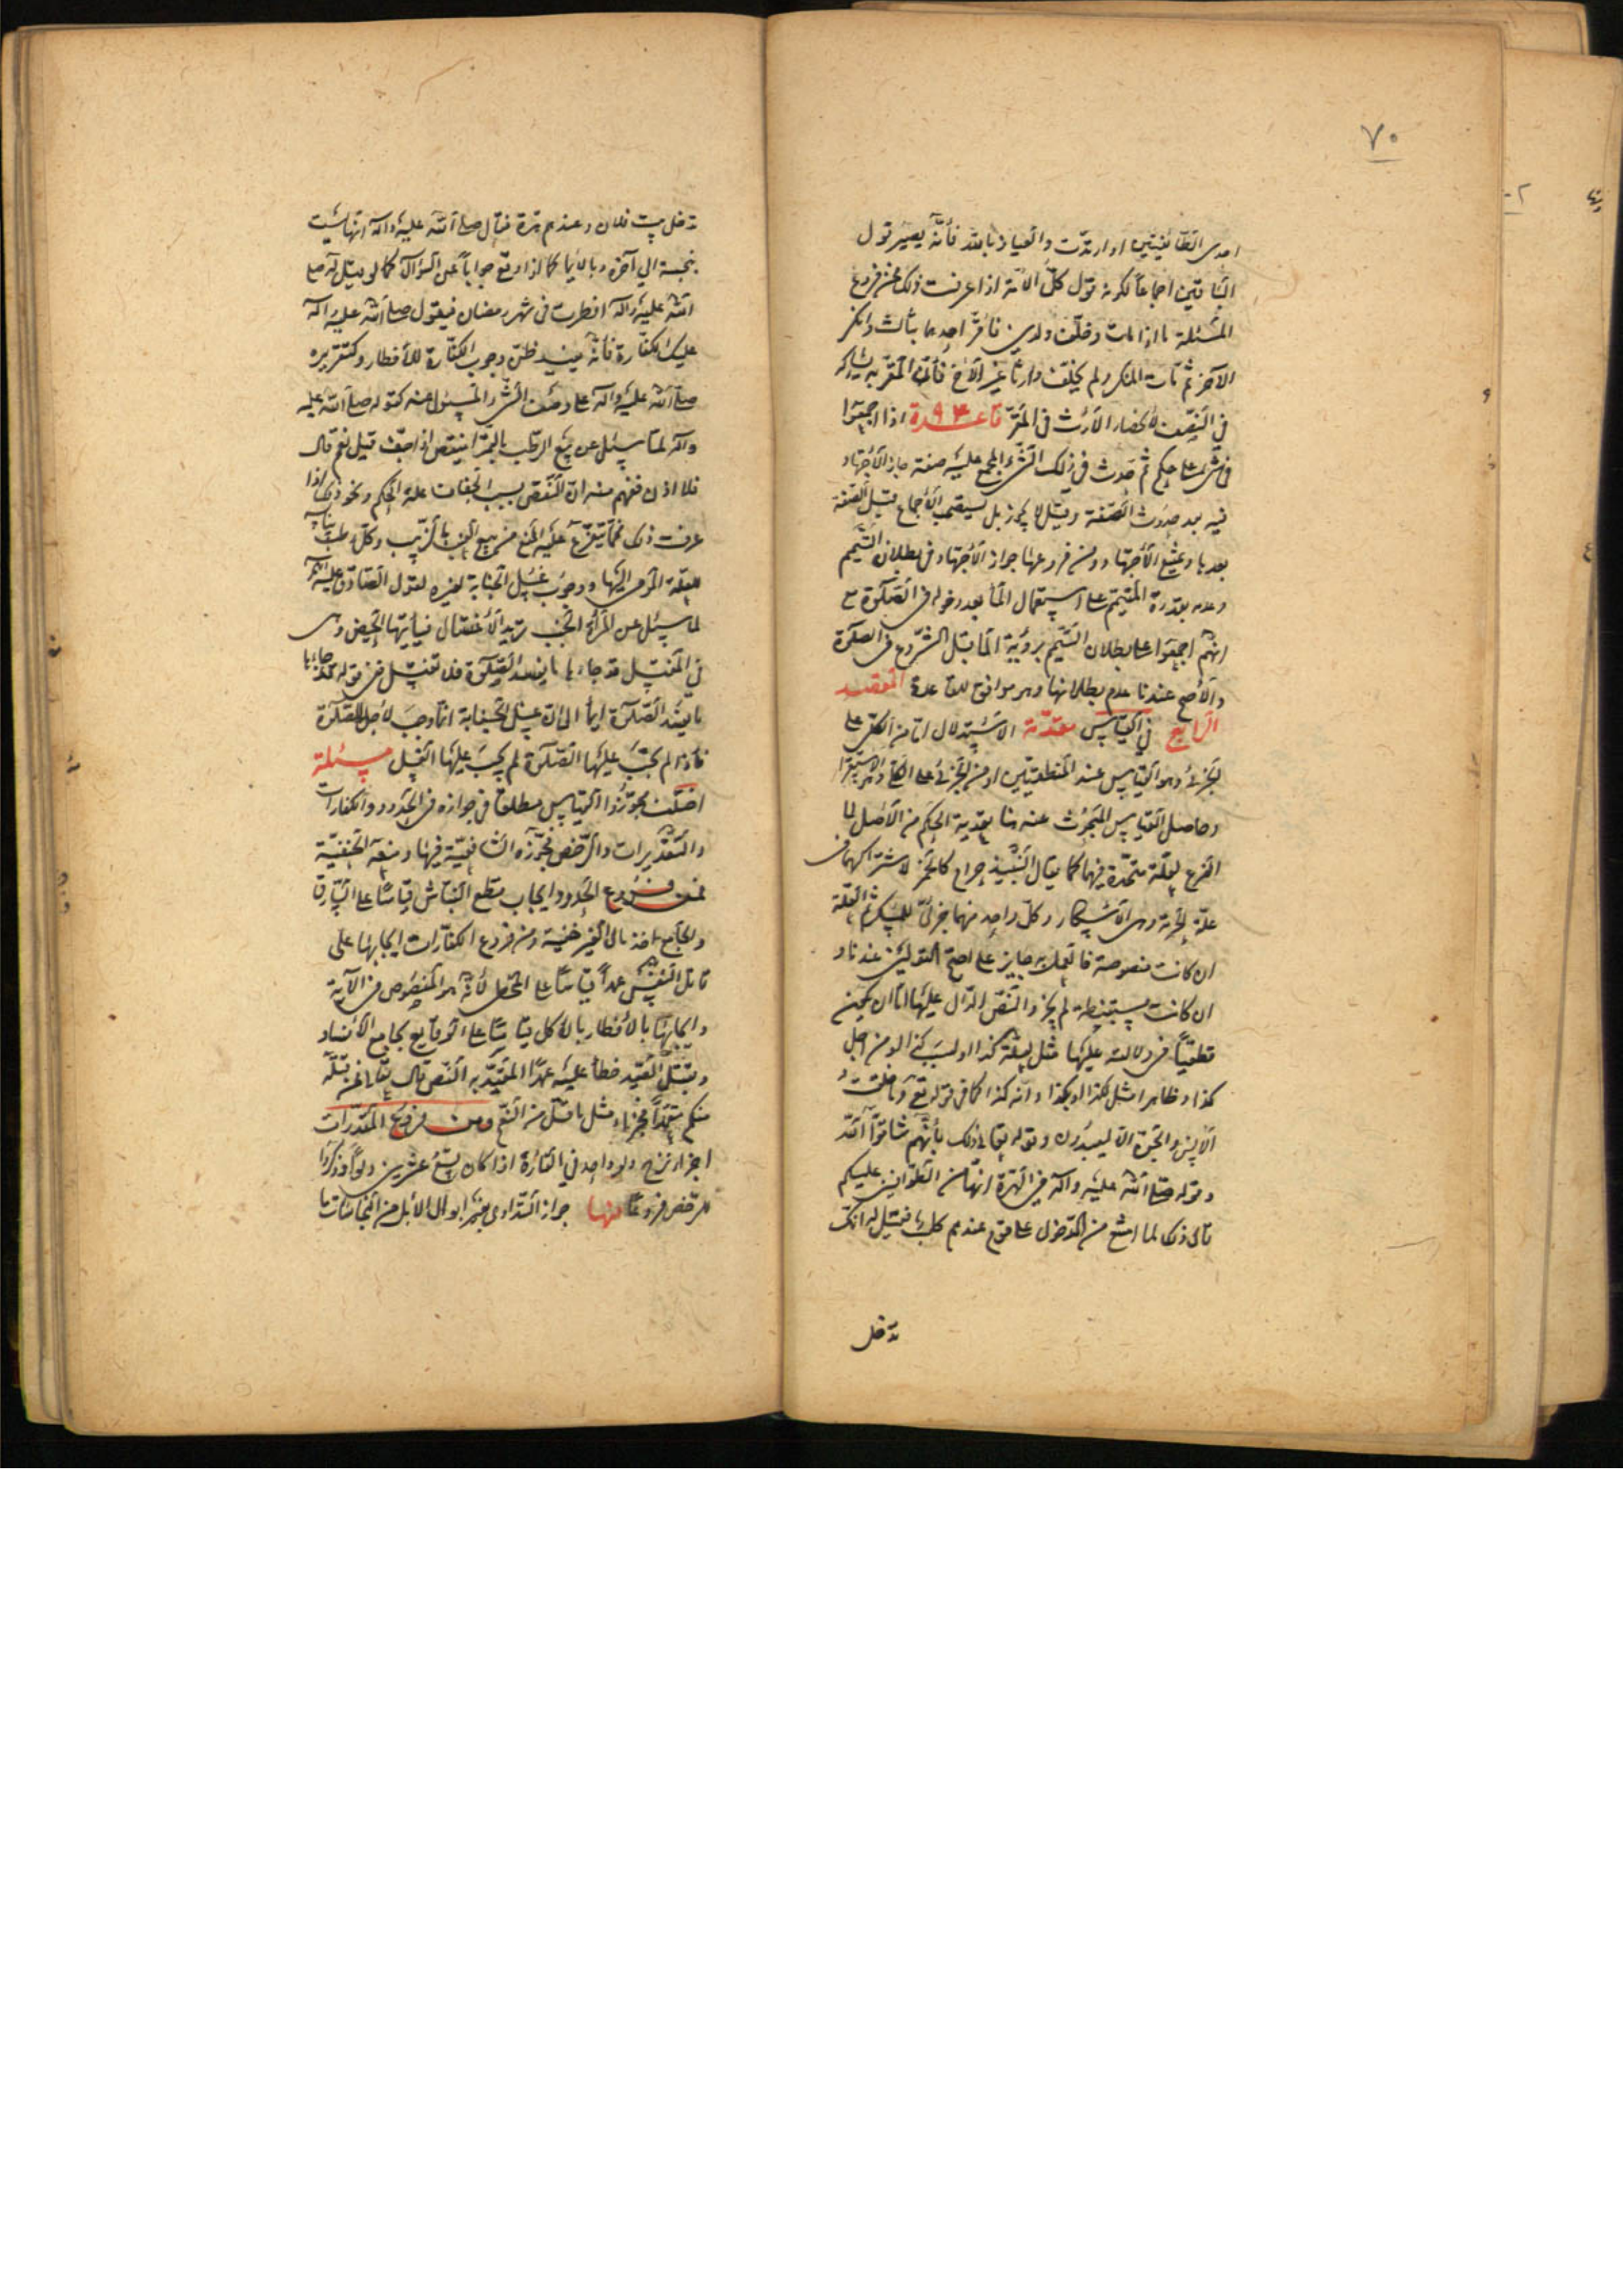 ٧٠
احدى الطائفتين او ارتدّت والعياذ بالله فأنّه يصير قول
الباقين اجماعاً لكونه قول كلّ الامّة اذا عرفت ذلك فمن فروع
المسئلة ما اذا مات وخلّف ولدين فاقرّ احدهما بثالث وانكر
الآخر ثم مات المنكر ولم يخلف وارثاً غير الأخ فأنّ المقرّ به يشاركه
في النصف لأنحصار الأرث في المقرّ قاعدة ٩٣ اذا اجمعوا
في شئ على حكم ثم حدث في ذلك الشئ المجمع عليه صفة جاز الأجتهاد
فيه بعد حدوث الصفة وقيل لا يجوز بل يستصحب الأجماع قبل الصفة
بعدها ويمنع الأجتهاد ومن فروعها جواز الأجتهاد في بطلان التيمم
وعدمه بقدرة المتيمم على استعمال الماء بعد دخوله في الصلوة مع
انهم اجمعوا على بطلان التيمم برؤية الماء قبل الشروع في الصلوة
والأصح عندنا عدم بطلانها وهو موافق للقاعدة المقصد
الرابع في القياس مقدمة الاستدلال امّا من الكلي على
الجزئي وهو القياس عند المنطقيين او من الجزئي على الكلي وهو الاستقراء
وحاصل القياس المبحوث عنه هنا تعدية الحكم من الأصل الى
الفرع لعلّة متحدة فيهما كما يقال النبيذ حرام كالخمر لاشتراكهما في
علّة الحرمة وهى الأسكار وكلّ واحد منهما جزئىّ للمسكر ثم العلّة
ان كانت منصوصة فالعمل به جايز على اصحّ القولين عندنا و
ان كانت مستنبطة لم يجز والنصّ الدّال عليها امّا ان يكون
قطعيّاً في دلالته عليها مثل لعلّة كذا او لسبب كذا او من اجل
كذا او ظاهرا مثل لكذا او بكذا او انّه كذا كما في قوله تعالى وما خلقت
الأنس والجنّ الّا ليعبدون وقوله تعالى ذلك بأنّهم شاقّوا الله
وقوله صلى الله عليه وآله في الهرّة انّها من الطوّافين عليكم
قال ذلك لما امتنع من الدخول على قوم عندهم كلب فقيل له انّك
تدخل
تدخل بيت فلان وعندهم هرّة فقال صلى الله عليه وآله انّها ليست
بنجسة الى آخره وبالأيماء كما اذا وقع جواباً عن السؤال كما لو قيل له صلى
الله عليه وآله افطرت في شهر رمضان فيقول صلى الله عليه وآله
عليك الكفّارة فأنّه يفيد ظنّ وجوب الكفّارة للأفطار وكتقريره
صلى الله عليه وآله على وصف الشئ المسئول عنه كقوله صلى الله عليه
وآله لمّا سئل عن بيع الرطب بالتمر اينقص اذا جفّ قيل نعم قال
فلا اذن ففهم منه انّ النقص بسبب الجفاف علّة الحكم ونحو ذلك اذا
عرفت ذلك فممّا يتفرّع عليه المنع من بيع العنب بالزبيب وكلّ رطب بيابسه
للعلّة المومى اليها ووجوب غسل الجنابة لغيره لقول الصادق عليه السلم
لما سئل عن المرأة الجنب تريد الأغتسال فيأتيها الحيض وهى
في المغتسل قد جاءها ما يفسد الصلوة فلا تغتسل ففي قوله قد جاءها
ما يفسد الصلوة ايماء الى انّ غسل الجنابة انّما وجب لأجل الصلوة
فأذا لم يجب عليها الصلوة لم يجب عليها الغسل مسئلة
اختلف مجوّزوا القياس مطلقا في جوازه في الحدود والكفارات
والتقديرات والرّخص فجوّزه الشافعيّة فيها ومنعه الحنفيّة
فمن فروع الحدود ايجاب قطع النبّاش قياساً على السّارق
والجامع اخذ مال الغير خفية ومن فروع الكفّارات ايجابها على
قاتل النفس عمداً قياساً على المخطى لأنّه هو المنصوص في الآية
وايجابها بالأفطار بالأكل قياساً على الوقاع بجامع الأفساد
وبقتل الصّيد خطأ عليه عمداً المقيّد به النّص قال تعالى فمن قتله
منكم متعمّداً فجزاء مثل ما قتل من النّعم ومن فروع المقدّرات
اجزاء نزح دلو واحد في الفأرة اذا كان يسع عشرين دلواً وذكروا
للرّخص فروعاً منها جواز التداوى بغير ابوال الأبل من النجاسات